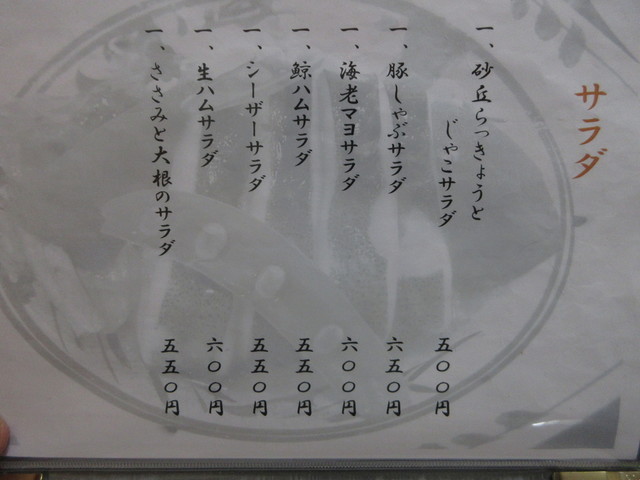 サラダ
一、砂丘らっきょうと
じゃこサラダ
五〇〇円
一、豚しゃぶサラダ
六五〇円
一、海老マヨサラダ
六〇〇円
一、鯨ハムサラダ
五五〇円
一、シーザーサラダ
五五〇円
一、生ハムサラダ
六〇〇円
一、ささみと大根のサラダ
五五〇円